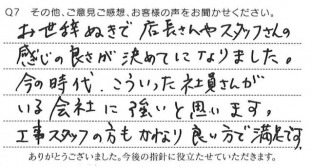 Q7 その他、ご意見ご感想、お客様の声をお聞かせください。
お世辞ぬきで 店長さんやスタッフさんの
感じの良さが 決めてになりました。
今の時代、こういった社員さんが
いる会社に 強いと思います。
工事スタッフの方も かなり良い方で満足です。
ありがとうございました。今後の指針に役立たせていただきます。